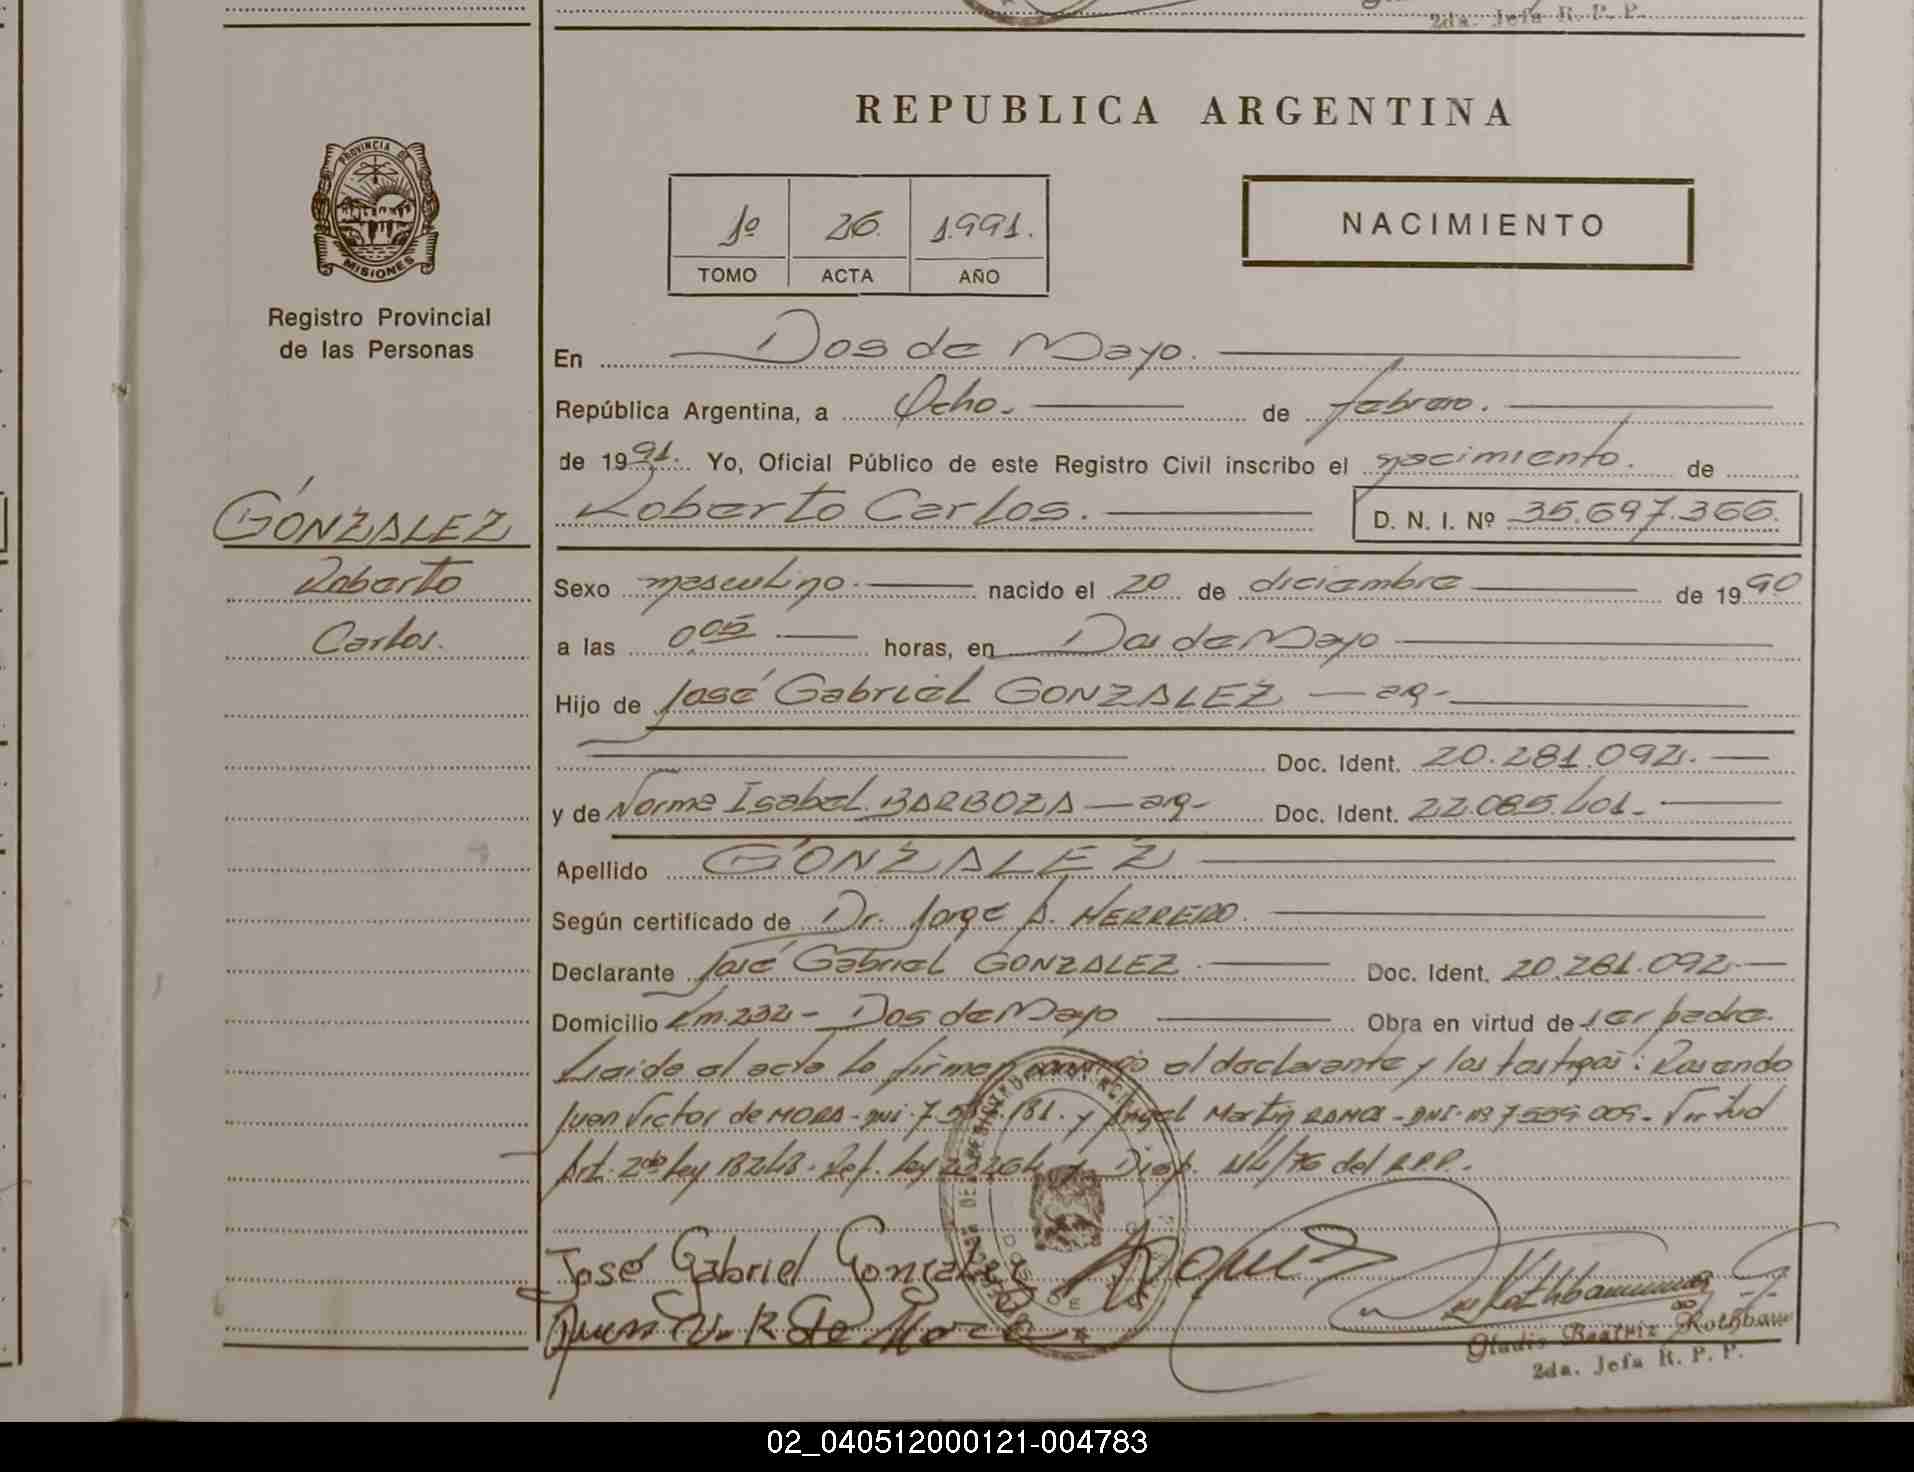 2da. Jefa R. P. P.
REPUBLICA ARGENTINA
PROVINCIA DE
MISIONES
Registro Provincial
de las Personas
1º 26. 1.991.
TOMO ACTA AÑO
NACIMIENTO
En Dos de Mayo.
República Argentina, a Ocho. de febrero.
de 1991. Yo, Oficial Público de este Registro Civil inscribo el nacimiento. de
Roberto Carlos. D. N. I. Nº 35.697.366.
GONZALEZ
Roberto
Carlos.
Sexo masculino. nacido el 20 de diciembre de 1990
a las 0,05 horas, en Dos de Mayo
Hijo de José Gabriel GONZALEZ — arg-
Doc. Ident. 20.281.092.
y de Norma Isabel BARBOZA — arg- Doc. Ident. 22.085.401.
Apellido GONZALEZ
Según certificado de Dr. Jorge A. HERRERO.
Declarante José Gabriel GONZALEZ. Doc. Ident. 20.281.092
Domicilio Km. 232 - Dos de Mayo Obra en virtud de ser padre.
Leída el acta la firman conmigo el declarante y los testigos: Rosendo
Juan Victor de MORA - DNI. 7. 181. y Angel Martín RAMOS - DNI. Nº 7.559.009 - Virtud
Art. 2do Ley 18248. Ref. Ley 23264 y Disp. 44/76 del R.P.P.
José Gabriel Gonzalez
Juan V. R de Mora
Gladis Beatriz Rothbau
2da. Jefa R. P. P.
02_040512000121-004783